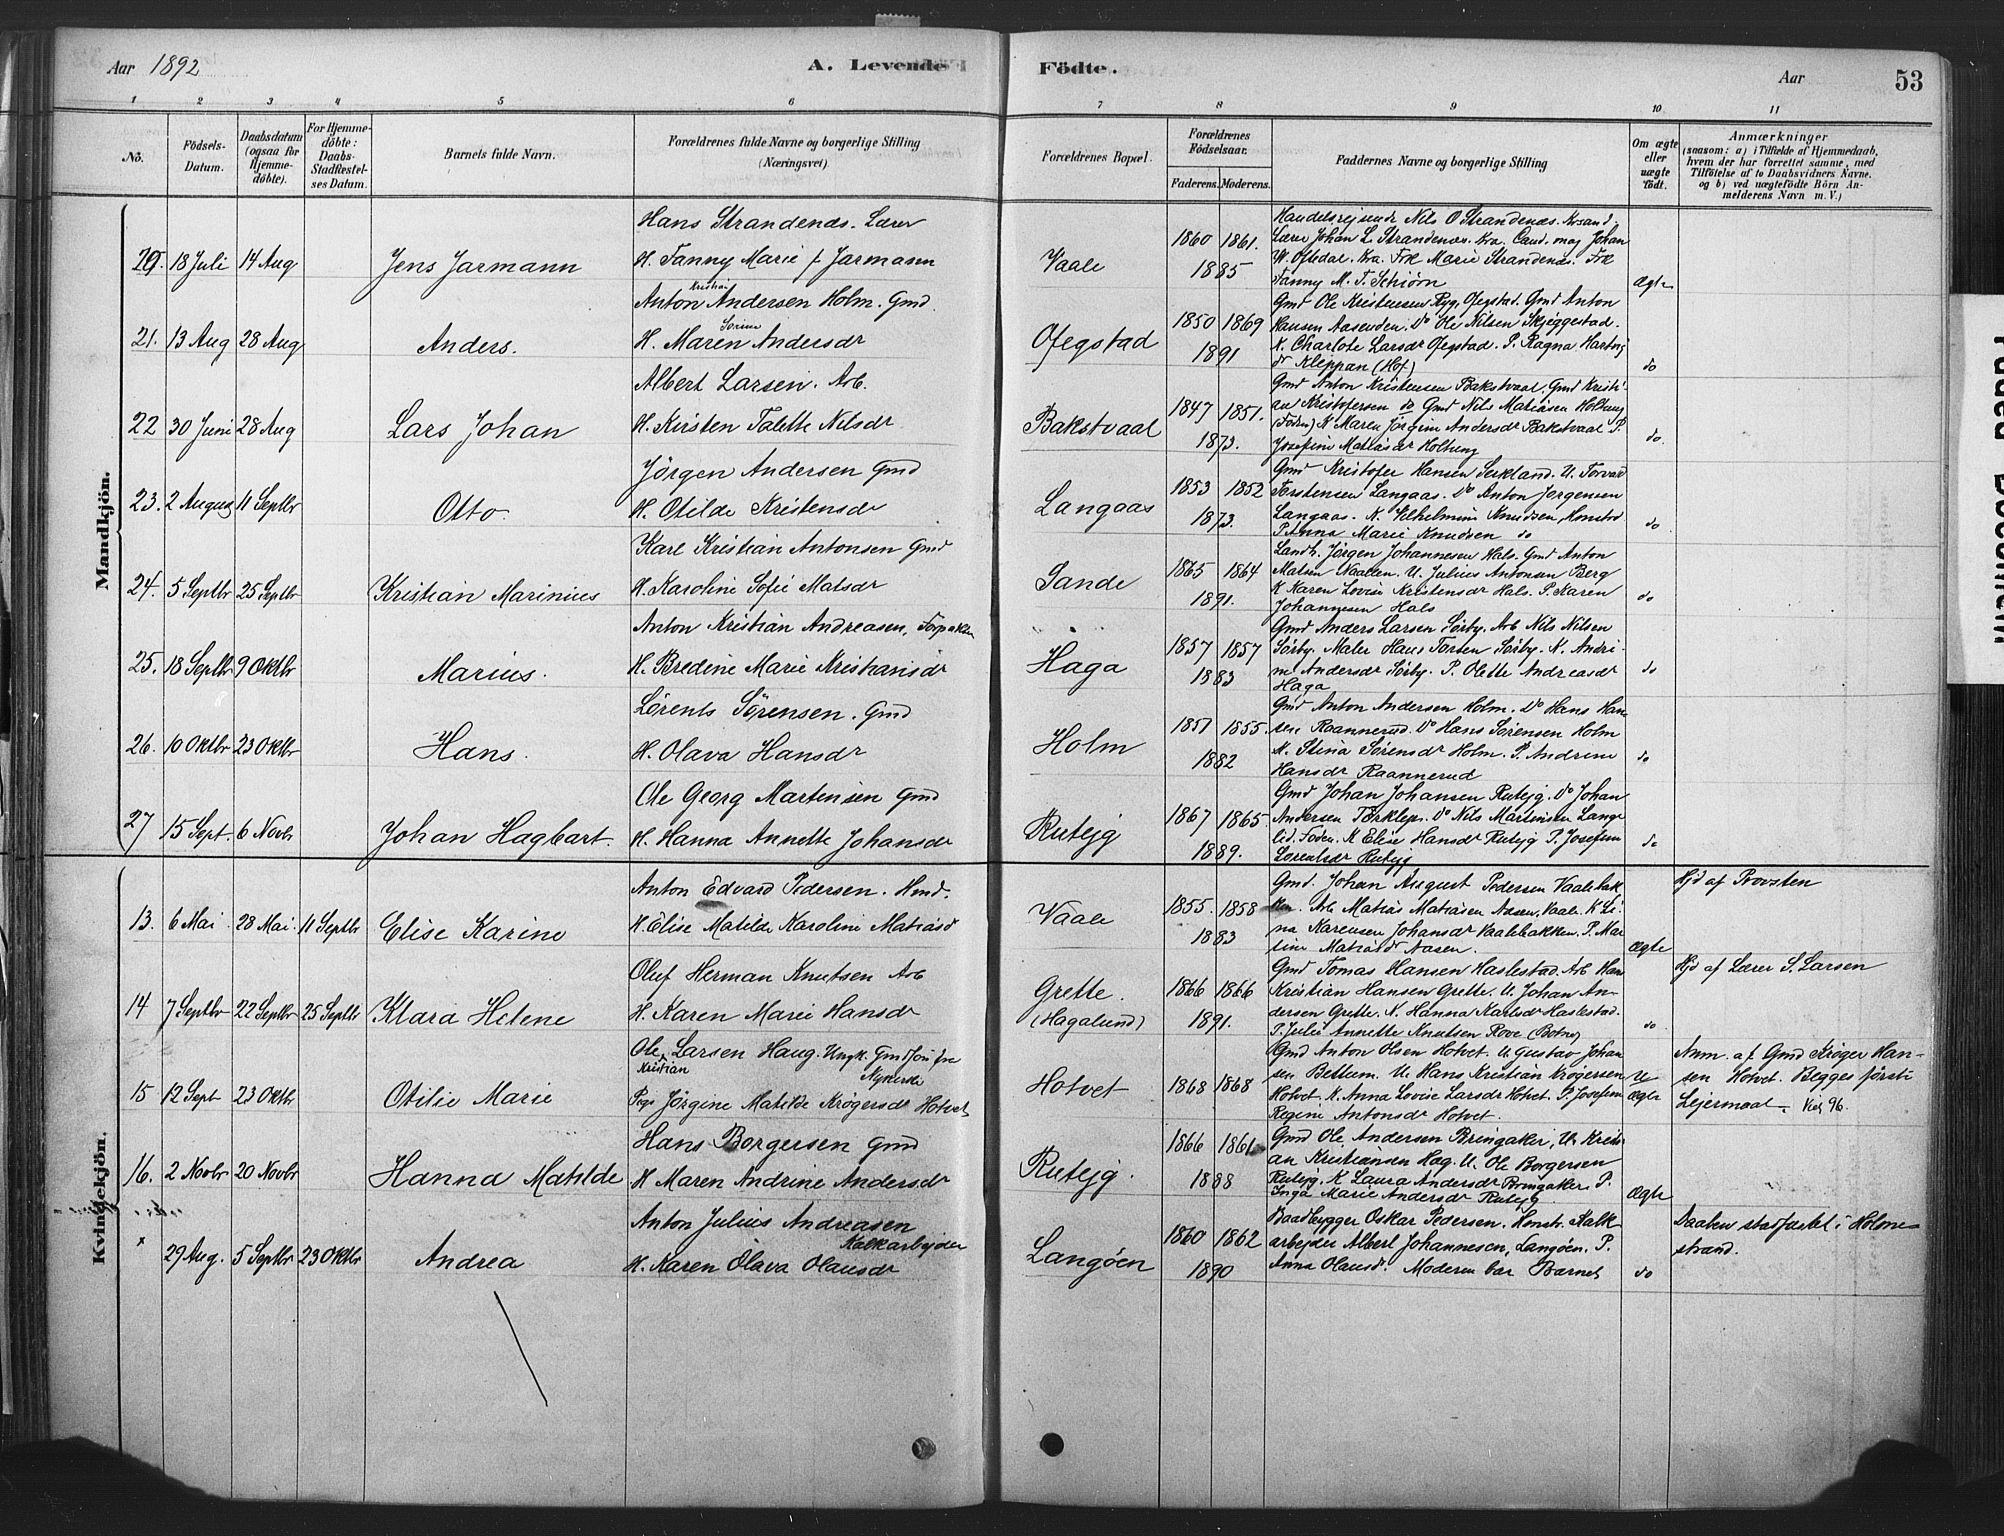 Aar 1892
A. Levende Födte.
Aar
53
1 2 3 4 5 6 7 8 9 10 11
No.
Födsels-Datum.
Daabsdatum (ogsaa for Hjemme-döbte).
For Hjemme-döbte: Daabs-Stadfæstelses Datum.
Barnets fulde Navn.
Forældrenes fulde Navne og borgerlige Stilling (Næringsvei)
Forældrenes Bopæl.
Forældrenes Födselsaar.
Faderens. Moderens.
Faddernes Navne og borgerlige Stilling
Om ægte eller uægte födt.
Anmærkninger
(saasom: a) i Tilfælde af Hjemmedaab,
hvem der har forrettet samme, med
Tilföielse af to Daabsvidners Navne.
og b) ved uægtefödte Börn An-
melderens Navn m. V.)
Mandkjön.
20. 18 Juli 14 Aug Jens Jarmann
Hans Strandenæs. Lærer
H. Fanny Marie f Jarmann
Vaale
1860 1861.
1885
Handelsrejsende Nils O Strandenæs. Krsand.
Lærer Johan L. Strandenæs. Kra. Cand. mag Johan
W. Oftedal. Kra. Frk Marie Strandenæs. Frk
Fanny M. T. Schiörn
Ægte
21. 13 Aug 28 Aug Anders.
Anton Kristian Andersen Holm. Gmd.
H. Maren Sorine Andersdr
Ofegstad
1850 1869
1891
Gmd Ole Kristensen Ryg, Ofegstad. Gmd Anton
Hansen Aasenden. Do Ole Nilsen Skjeggestad.
K. Charlote Larsdr Ofegstad. P. Ragna Hartvig
dr Kleppan (Hof)
do
22 30 Juni 28 Aug Lars Johan
Albert Larsen. Arb.
H. Kirsten Talette Nilsdr
Bakstvaal
1847 1851.
1873.
Gmd Anton Kristensen Bakstvaal, Gmd Kristi-
an Kristofersen do Gmd Nils Matiasen Holtung
(Foden) K Maren Jörgine Andersdr Bakstvaal P.
Josefine Matiasdr Holtung
do.
23. 2 August 11 Septbr Otto.
Jörgen Andersen Gmd
H. Otilde Kristensdr
Langaas
1853 1852
1873.
Gmd Kristofer Hansen Serkland. U. Torvald
Torstensen Langaas. Do Anton Jorgensen
Langaas. K. Vilhelmine Knudsen, Honstod
P Anna Marie Knudsen do
do
24. 5 Septbr 25 Septbr Kristian Marinius
Karl Kristian Antonsen Gmd
H. Karoline Sofie Matsdr
Sande
1865 1864
1891.
Landh. Jörgen Johannesen Hals. Gmd Anton
Matsen Naalen. U. Julius Antonsen Berg
K Karen Lovise Kristensdr Hals. P. Karen
Johannesen Hals
do
25. 18 Septbr 9 Oktbr Marius.
Anton Kristian Andreasen, Forpakter
H. Bredine Marie Kristiansdr
Haga
1857 1857
1883
Gmd Anders Larsen Sörby. Arb Nils Nilsen
Sörby. Maler Hans Torsten Sörby. K. Andri-
ne Andersdr Sörby. P. Olette Andreasdr
Haga
do
26. 10 Oktbr 23 Oktbr Hans.
Lörents Sörensen. Gmd
H. Olava Hansdr
Holm
1851 1855.
1882
Gmd Anton Andersen Holm. Do Hans Han-
sen Raannerud. Do Hans Sörensen Holm
K. Stina Sörensdr Holm. P. Andrine
Hansdr Raannerud
do
27 15 Sept. 6 Novbr Johan Hagbart.
Ole Georg Martinsen Gmd
H. Hanna Annette Johansdr
Rutejg
1867 1865.
1889.
Gmd Johan Johansen Rutejg. Do Johan
Andersen Törklep. Do Nils Martinsen Lange
lid. Foden. K Elise Hansdr Rutejg P. Josefine
Lorentsdr Rutejg
do
Kvindekjön.
13. 6 Mai 28 Mai. 11 Septbr Elise Karine
Anton Edvard Pedersen. Hmd.
H. Elise Matilde Karoline Matiasd
Vaale
1855. 1858
1883
Gmd. Johan August Pedersen Vaalebak-
ken. Arb Matias Matiasen Aasen, Vaale. K Li-
na Karensen Johansdr Vaalebakken. P. Mar
tine Matiasdr Aasen.
Ægte
Hjd af Provsten
14 7 Septbr 22 Septbr 25 Septbr Klara Helene
Oluf Herman Knutsen Arb
H. Karen Marie Hansdr
Grette.
(Hagalund)
1866 1866
1891.
Gmd Tomas Hansen Haslestad. Arb Hans
Kristian Hansen Grette. U Johan An-
dersen Grette. K. Hanna Karlsdr Haslestad.
P. Julie Annette Knutsen Rove (Botne)
do
Hjd af Lærer S. Larsen
15 12 Sept 23 Oktbr Otilie Marie
Ole Kristian Larsen Haug. Ungk. Gmdsön fra
Nykirke
Pige Jörgine Matilde Krögersdr Hotvet
Hotvet
1868 1868
Gmd Anton Olsen Hotvet. U Gustav Johan
sen Bettum. U Hans Kristian Krögersen
Hotvet. K. Anna Lovise Larsdr Hotvet. P. Josefine
Regine Antonsdr Hotvet.
U ægte
Anm. af Gmd Kröger Han-
sen Hotvet. Begges förste
Lejermaal. Viet 96.
16. 2 Novbr 20 Novbr Hanna Matilde
Hans Borgersen Gmd
H Maren Andrine Andersdr
Rutejg.
1866 1861
1888
Gmd Ole Andersen Bringaker, U. Kristi-
an Kristiansen Hag. U. Ole Borgersen
Rutejg. K Laura Andersdr Bringaker. P.
Inga Marie Andersdr Rutejg
Ægte
x 29 Aug. 5 Septbr 23 Oktbr Andrea
Anton Julius Andreasen
Kalkarbejder
H. Karen Olava Olausdr
Langöen
1860 1862
1890
Baadbygger Oskar Pedersen. Honstr. Kalk-
arbejder Albert Johannesen, Langöen. P.
Anna Olausdr. Moderen bar Barnet
do
Daaben stadfæstet i Holme-
strand.